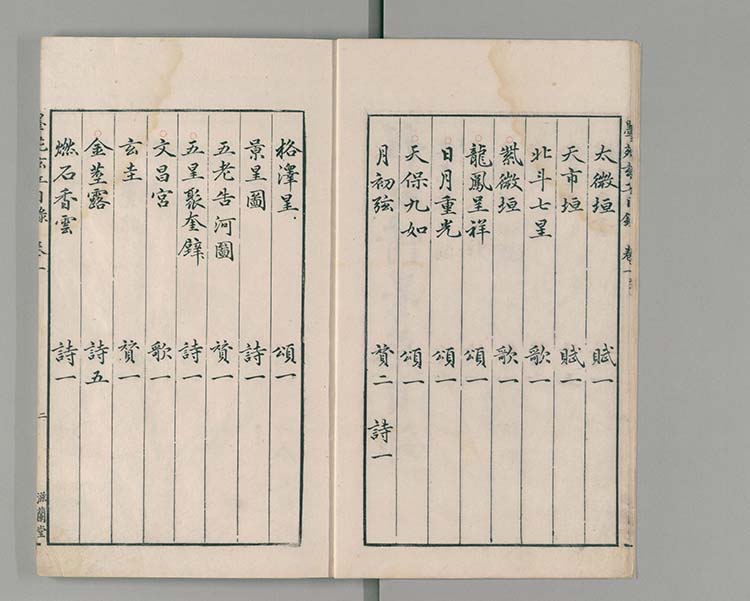 太微垣 賦一
天市垣 賦一
北斗七星 歌一
紫微垣 歌一
龍鳳呈祥 頌一
日月重光 頌一
天保九如 頌一
月初弦 贊二 詩一
格澤星 頌一
景星圖 詩一
五老告河圖 贊一
五星聚奎璧 詩一
文昌宮 歌一
玄圭 贊一
金莖露 詩五
燃石香雲 詩一
二
滋蘭堂